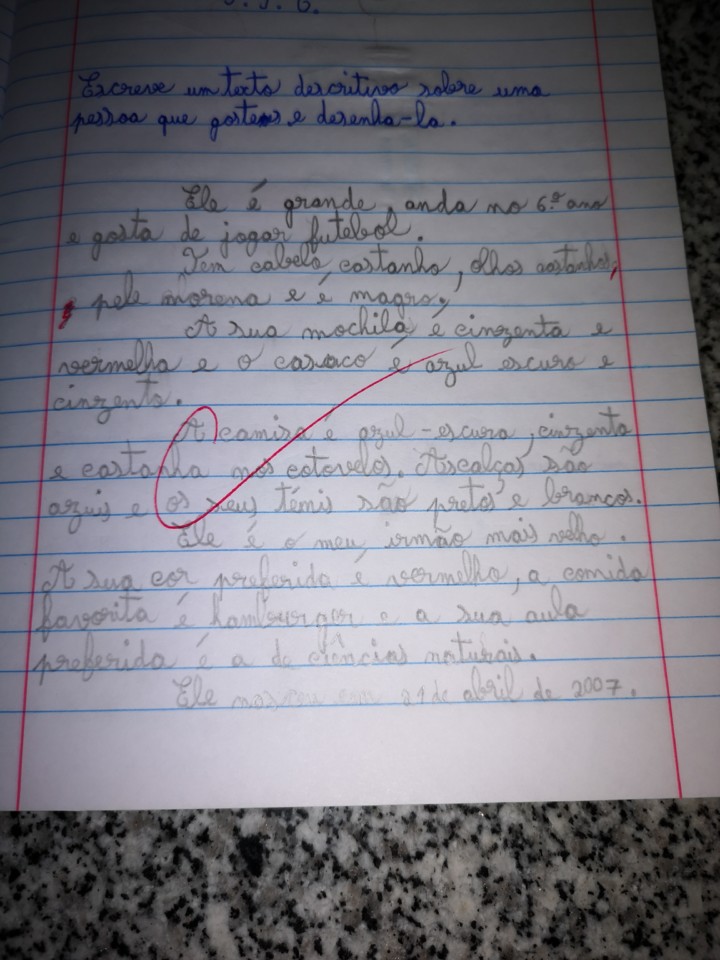 Escreve um texto descritivo sobre uma
pessoa que gostes e desenha-la.
Ele é grande, anda no 6.º ano
e gosta de jogar futebol.
Tem cabelo castanho, olhos castanhos,
pele morena e é magro.
A sua mochila é cinzenta e
vermelha e o casaco é azul escuro e
cinzento.
A camisa é azul-escura, cinzenta
e castanha nos cotovelos. As calças são
azuis e os seus ténis são pretos e brancos.
Ele é o meu irmão mais velho.
A sua cor preferida é vermelho, a comida
favorita é hamburger e a sua aula
preferida é a de ciências naturais.
Ele em 21 de abril de 2007.